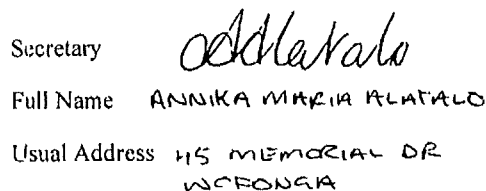 Secretary
Full Name ANNIKA MARIA ALATALO
Usual Address 45 MEMORIAL DR
WODONGA